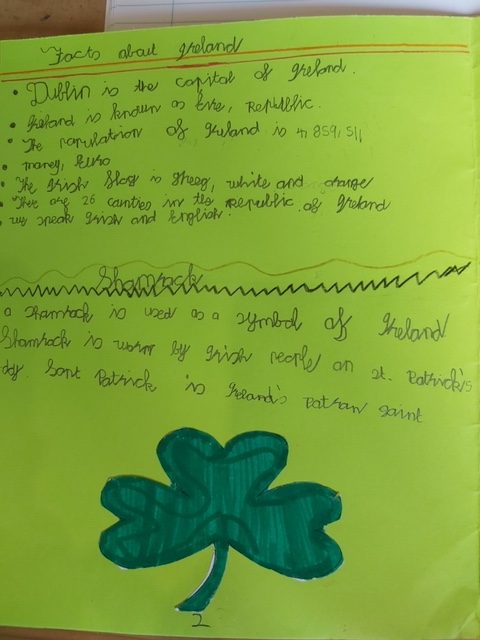 Facts about Ireland
• Dublin is the capital of Ireland.
• Ireland is known as Eire, Republic.
• The population of Ireland is 4,859,511
• money, Euro
• The Irish flag is Green, white and orange
• There are 26 counties in the republic of Ireland
• we speak Irish and English.
Shamrock
a Shamrock is used as a symbol of Ireland
Shamrock is worn by Irish people on st. Patrick's
day. Sant Patrick is Ireland's Patran saint
2